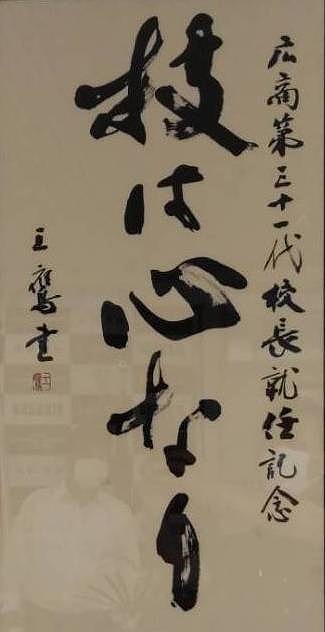 広商第三十一代校長就任記念
技は心なり
玉鷹書